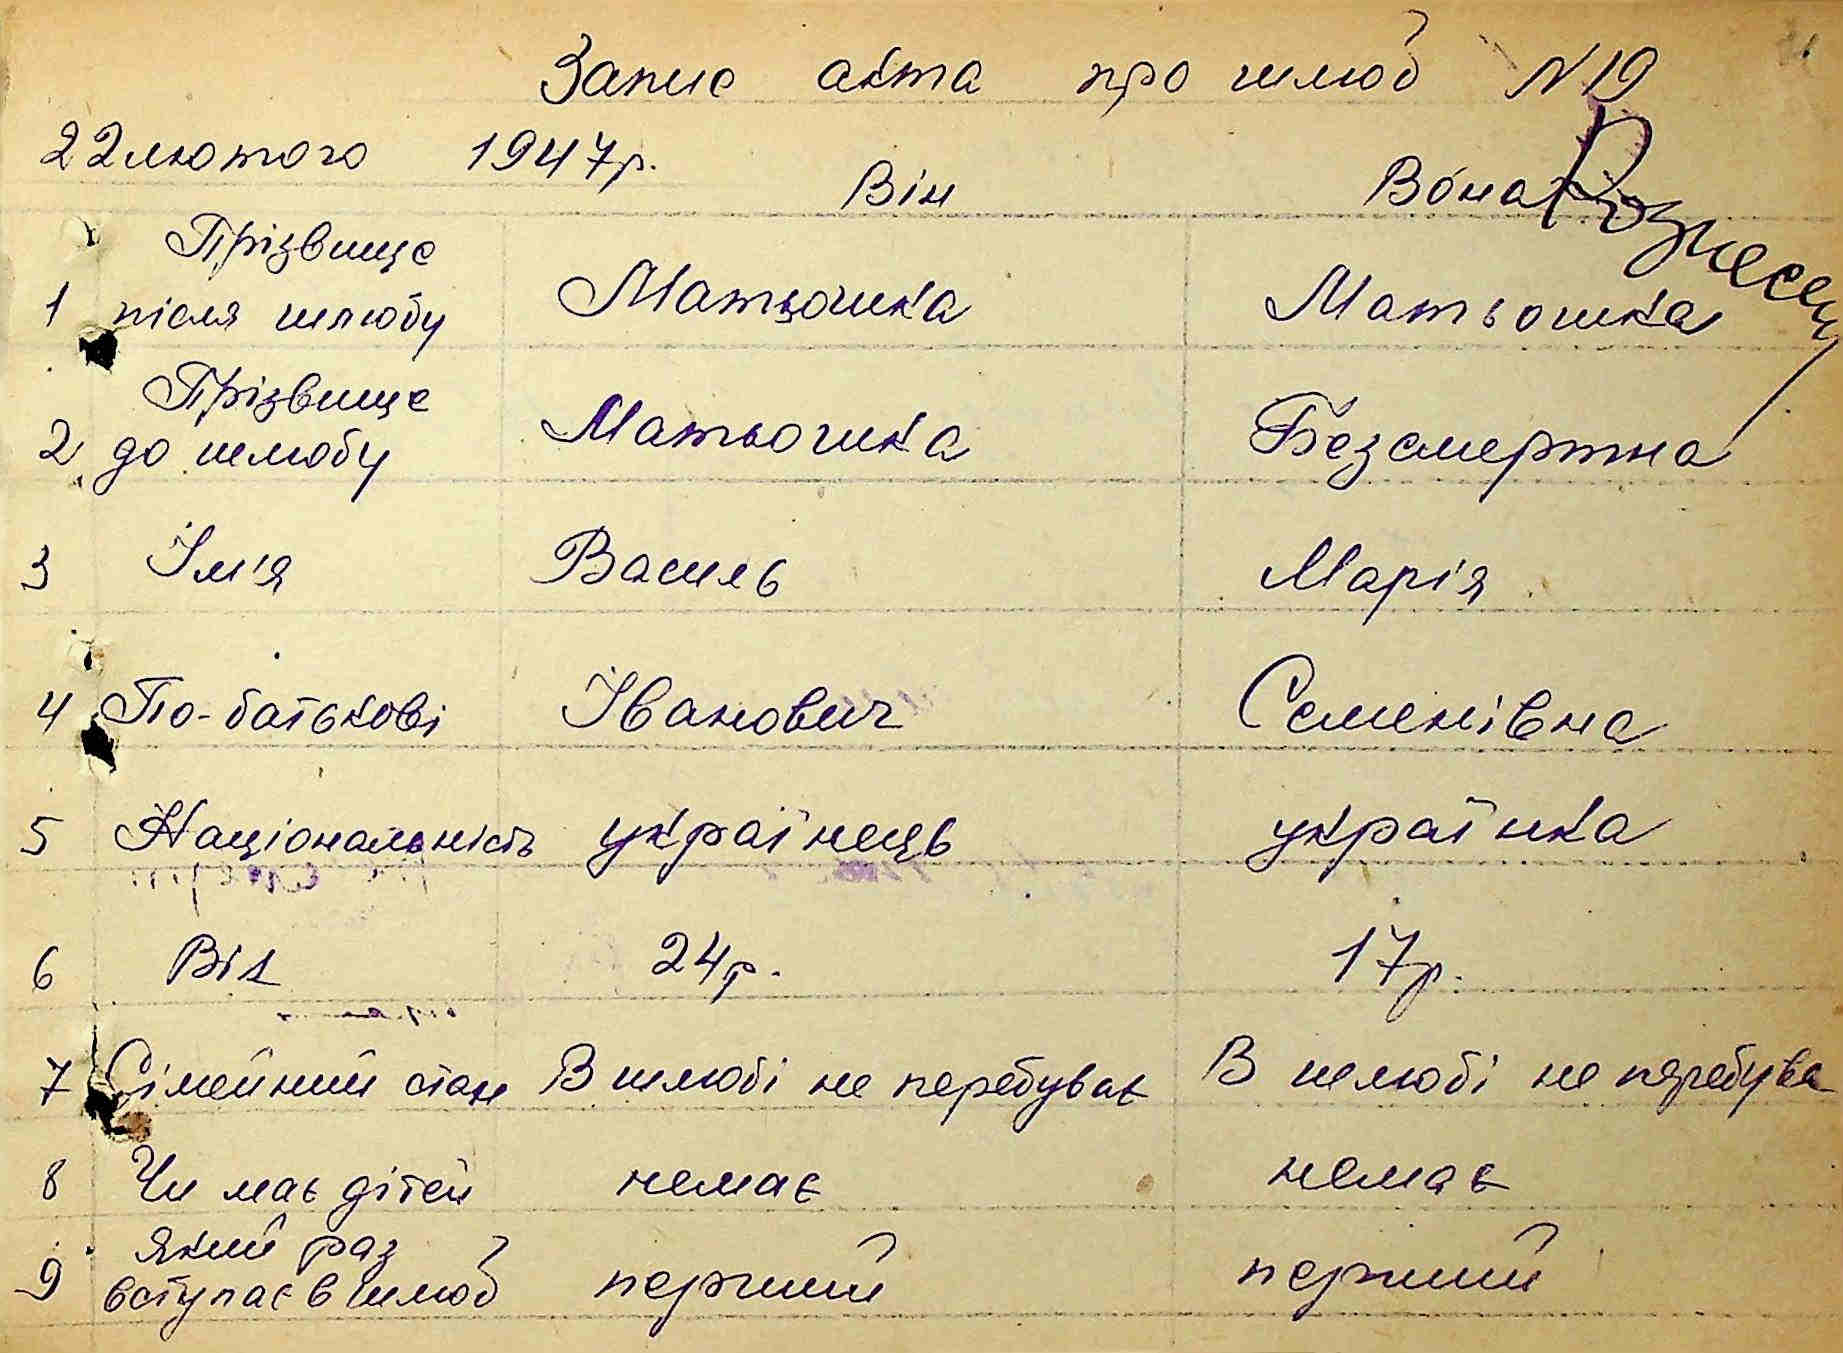 Запис акта про шлюб N 19
22 лютого 1947 р.
Він Вона
Рознесен
Прізвище
1 після шлюбу Матьошка Матьошка
Прізвище
2 до шлюбу Матьошка Безсмертна
3 Ім'я Василь Марія
4 По-батькові Іванович Семенівна
5 Національність українець українка
6 Вік 24 р. 17 р.
7 Сімейний стан В шлюбі не перебуває В шлюбі не перебува
8 Чи має дітей немає немає
який раз
9 вступає в шлюб перший перший